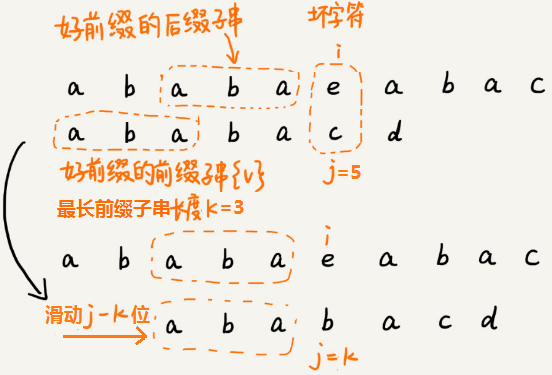 好前缀的后缀子串 坏字符
i
a b a b a e a b a c
a b a b a c d
好前缀的前缀子串{v} j=5
最长前缀子串长度k=3
i
a b a b a e a b a c
滑动j-k位 a b a b a c d
j=k